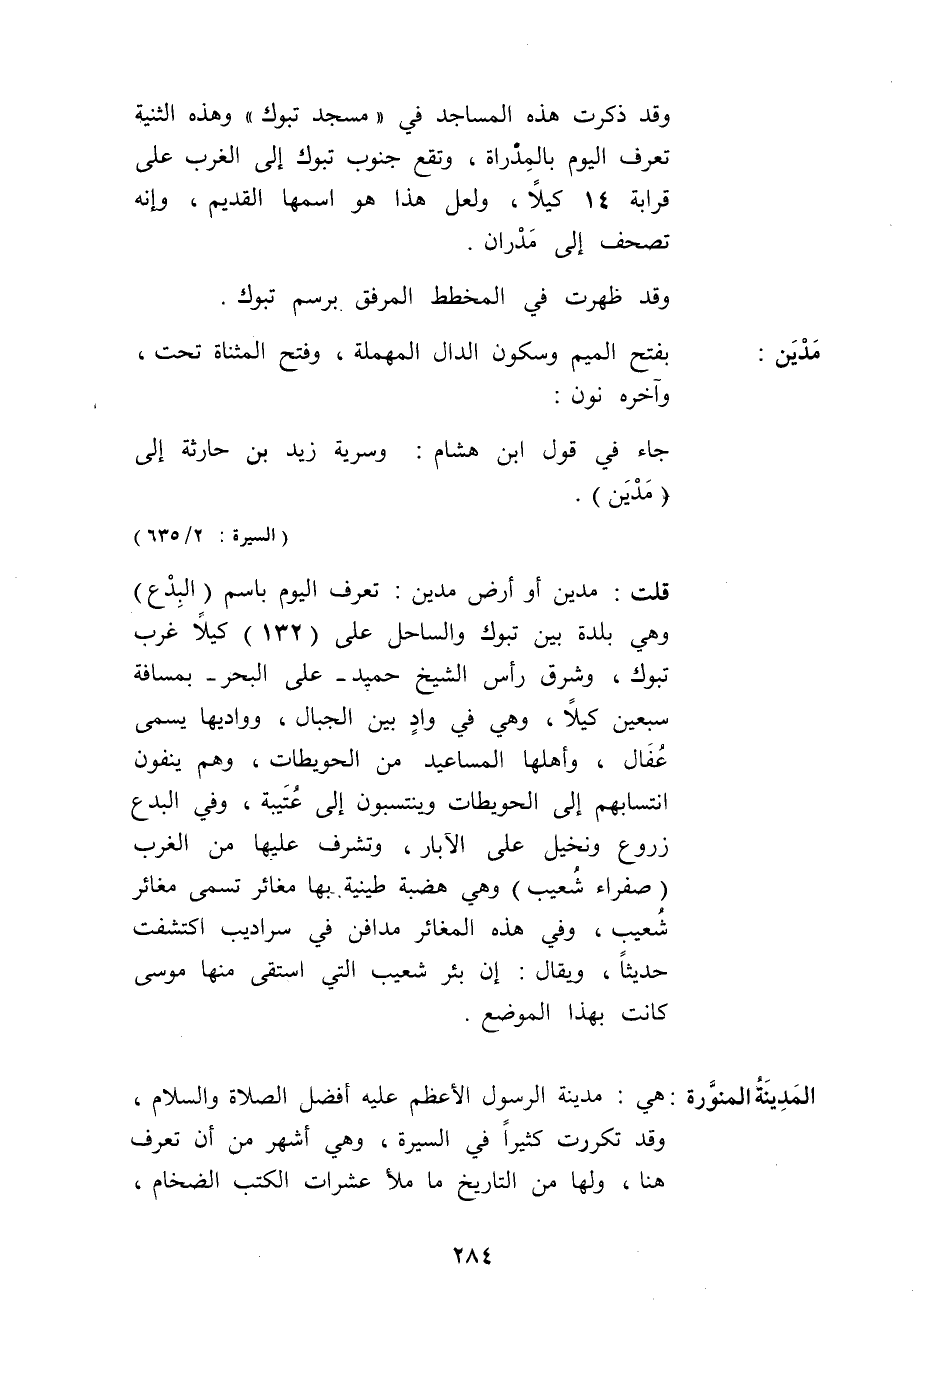 وقد ذكرت هذه المساجد في « مسجد تبوك » وهذه الثنية
تعرف اليوم بالمِدْراة ، وتقع جنوب تبوك إلى الغرب على
قرابة ١٤ كيلاً ، ولعل هذا هو اسمها القديم ، وإنه
تصحف إلى مَدْران .
وقد ظهرت في المخطط المرفق برسم تبوك .
مَدْيَن : بفتح الميم وسكون الدال المهملة ، وفتح المثناة تحت ،
وآخره نون :
جاء في قول ابن هشام : وسرية زيد بن حارثة إلى
( مَدْيَن ) .
( السيرة : ٢/ ٦٣٥ )
قلت : مدين أو أرض مدين : تعرف اليوم باسم ( البِدْع )
وهي بلدة بين تبوك والساحل على ( ١٣٢ ) كيلاً غرب
تبوك ، وشرق رأس الشيخ حميد ـ على البحر ـ بمسافة
سبعين كيلاً ، وهي في وادٍ بين الجبال ، وواديها يسمى
عُفَال ، وأهلها المساعيد من الحويطات ، وهم ينفون
انتسابهم إلى الحويطات وينتسبون إلى عُتَيبة ، وفي البدع
زروع ونخيل على الآبار ، وتشرف عليها من الغرب
( صفراء شُعيب ) وهي هضبة طينية بها مغائر تسمى مغائر
شُعيب ، وفي هذه المغائر مدافن في سراديب اكتشفت
حديثاً ، ويقال : إن بئر شعيب التي استقى منها موسى
كانت بهذا الموضع .
المَدِينَةُ المنوَّرة : هي : مدينة الرسول الأعظم عليه أفضل الصلاة والسلام ،
وقد تكررت كثيراً في السيرة ، وهي أشهر من أن تعرف
هنا ، ولها من التاريخ ما ملأ عشرات الكتب الضخام ،
٢٨٤